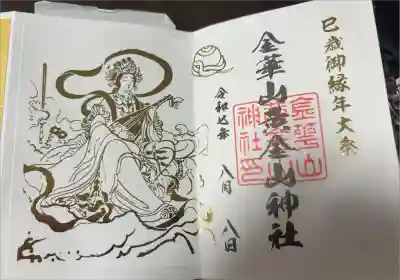 巳歳御縁年大祭
金華山黄金山神社
令和七年 八月 八日
金華山
神社印